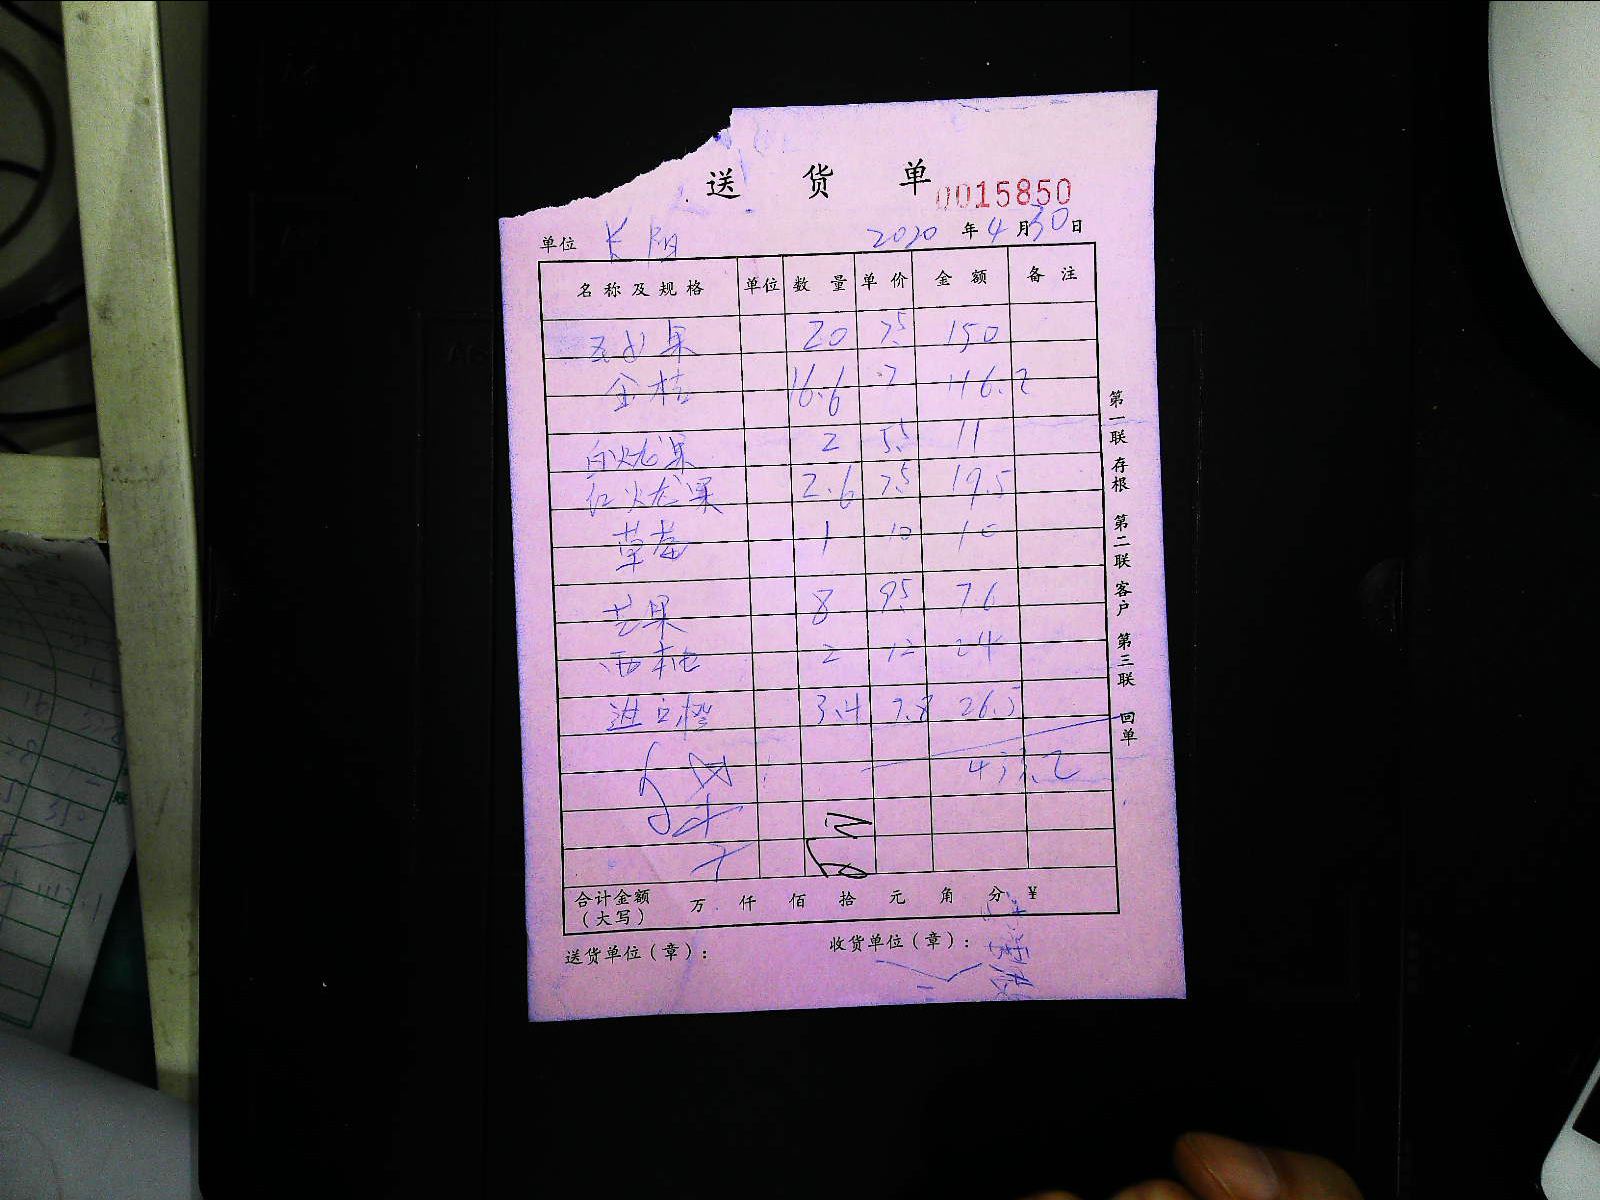 送货单
0015850
单位 长阳 2020年4月30日
名称及规格 单位 数量 单价 金额 备注
20 7.5 150
金桔 16.6 7 116.2
白火龙果 2 5.5 11
红火龙果 2.6 7.5 19.5
草莓 1 10 10
芒果 8 9.5 76
西柚 2 12 24
进口橙 3.4 7.8 26.5
433.2
合计金额（大写） 万 仟 佰 拾 元 角 分 ¥
送货单位（章）： 收货单位（章）：
第一联 存根 第二联 客户 第三联 回单